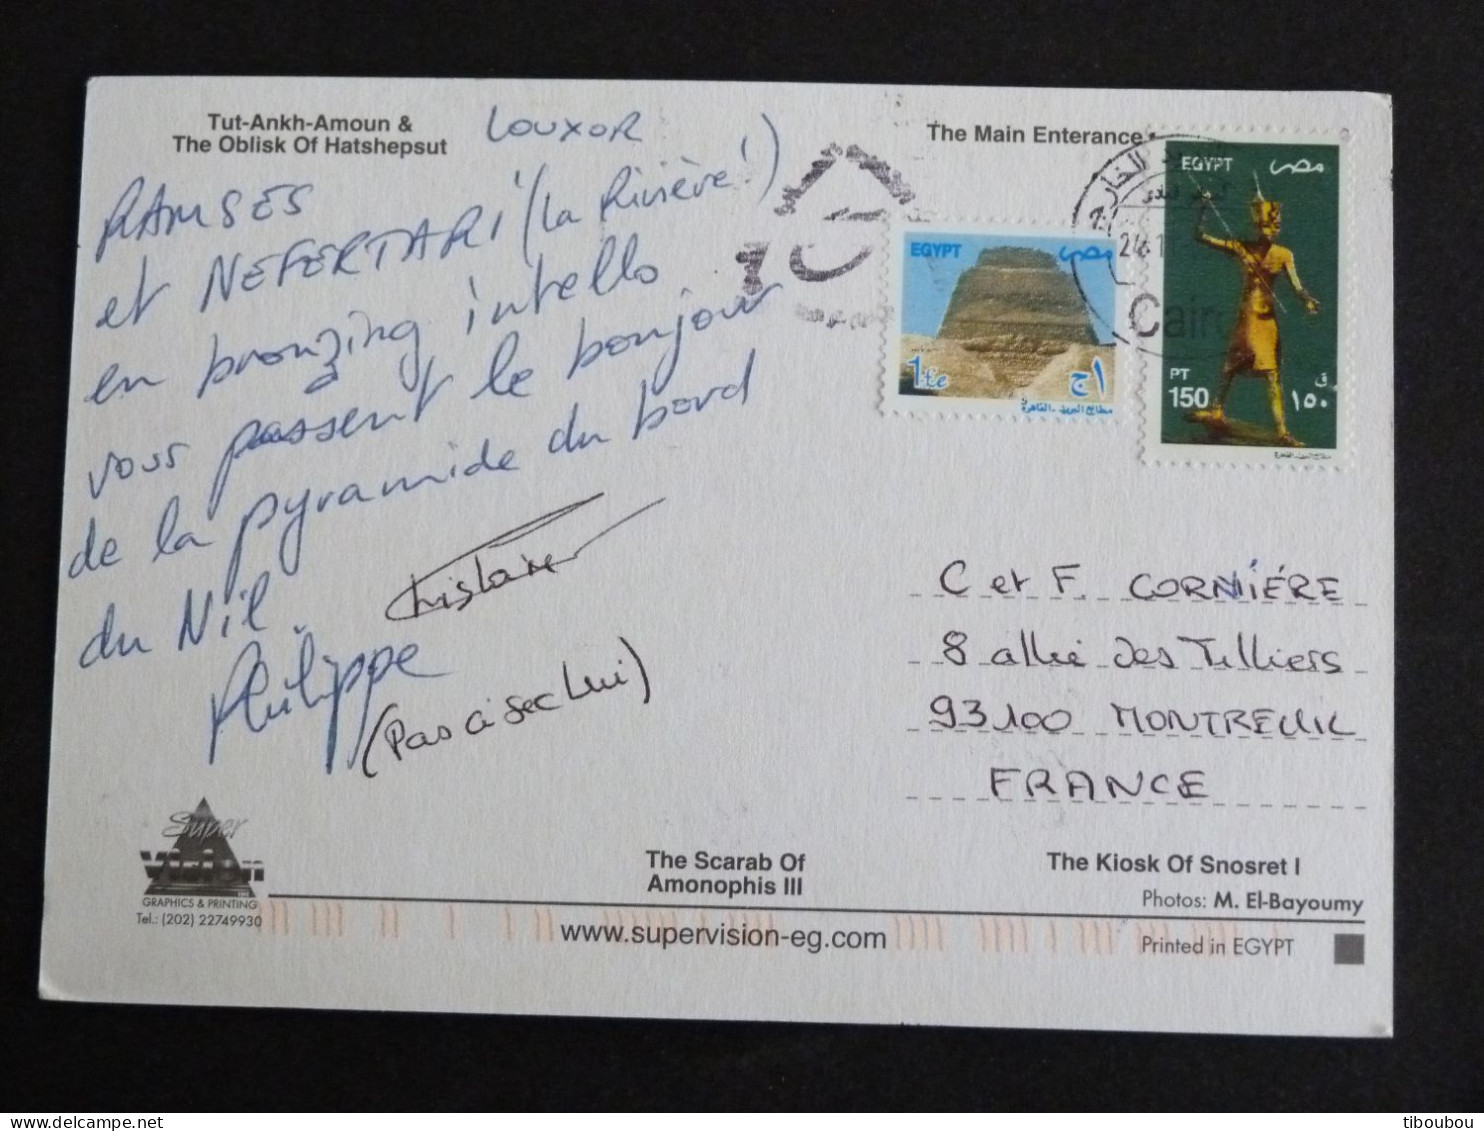 Tut-Ankh-Amoun &
The Oblisk Of Hatshepsut
The Main Enterance
LOUXOR
RAMSES
et NEFERTARI (la Rivière!)
en bronzing intello
vous passent le bonjour
de la pyramide du bord
du Nil.
Philippe
Ghislaine
(Pas ci sec Lui)
EGYPT مصر
1£e ١ج
مطابع البريد - القاهرة
EGYPT مصر
PT ق
150 ١٥٠
Cairo
C et F CORNIÉRE
8 allée des Tilliers
93100 MONTREUIL
FRANCE
Super
Vision
GRAPHICS & PRINTING
Tel.: (202) 22749930
The Scarab Of
Amonophis III
The Kiosk Of Snosret I
Photos: M. El-Bayoumy
www.supervision-eg.com
Printed in EGYPT
tiboubou